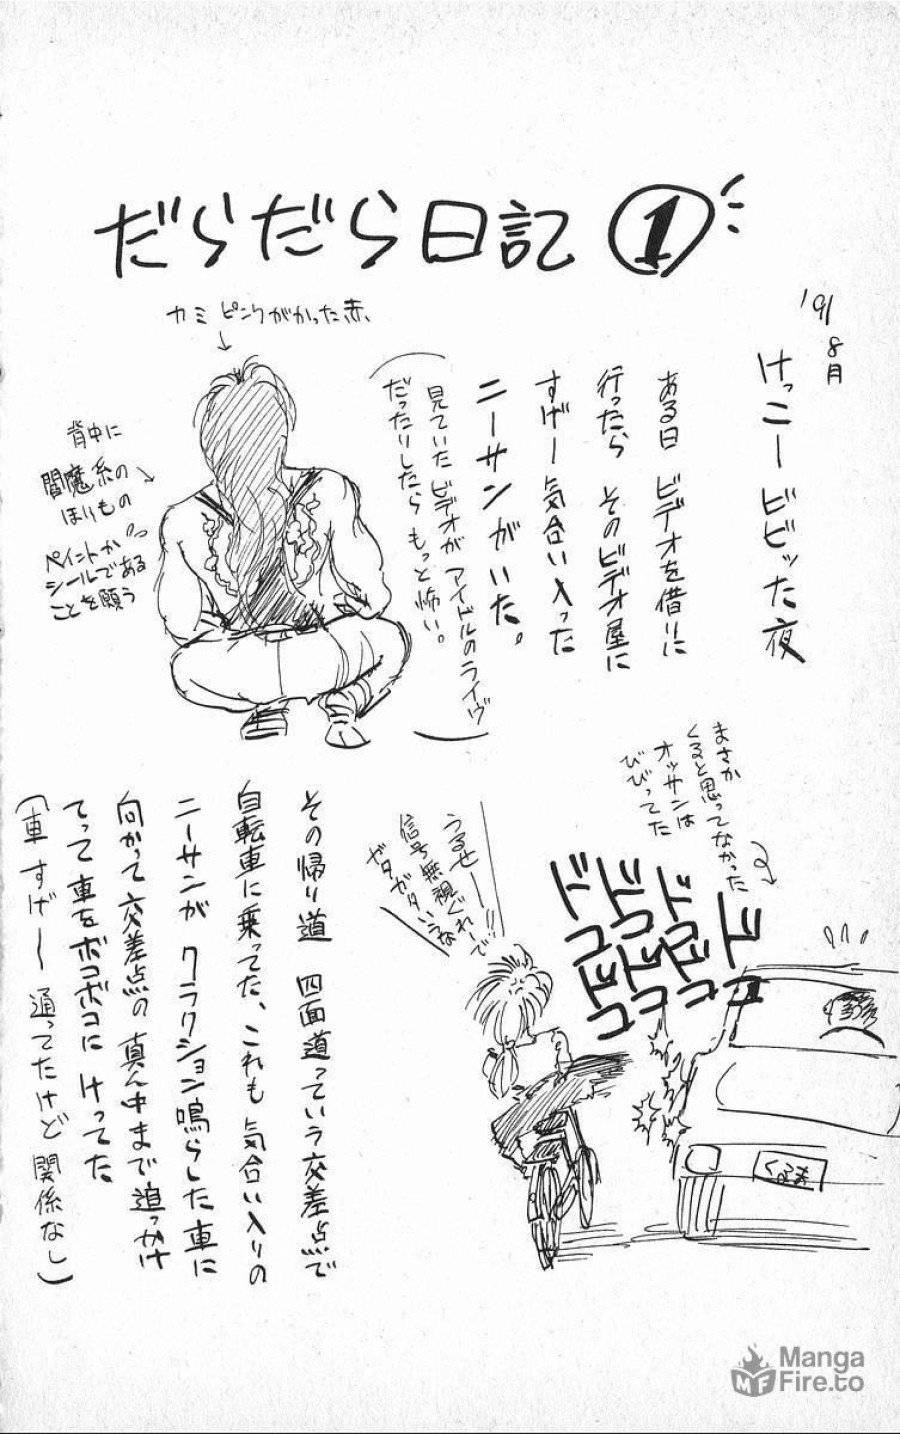 だらだら日記 ①
'91 8月
けっこービビッた夜
ある日 ビデオを借りに
行ったら そのビデオ屋に
すげー気合い入った
ニーサンがいた。
(見ていたビデオが アイドルのライヴ
だったりしたら もっと怖い。)
カミ ピンクがかった赤、
背中に
閻魔系の
ほりもの
ペイントか
シールである
ことを願う
まさか
くると思ってなかった
オッサンは
びびってた
ドドドドド
ココココ
ドドドド
ココココ
うるせー
信号無視ぐれーで
ガタガタいうな
くるま
その帰り道 四面道っていう交差点で
自転車に乗ってた、これも気合い入りの
ニーサンが クラクション鳴らした車に
向かって交差点の真ん中まで追っかけ
てって車をボコボコに けってた
(車 すげー 通ってたけど 関係なし)
Manga
Fire.to
MF